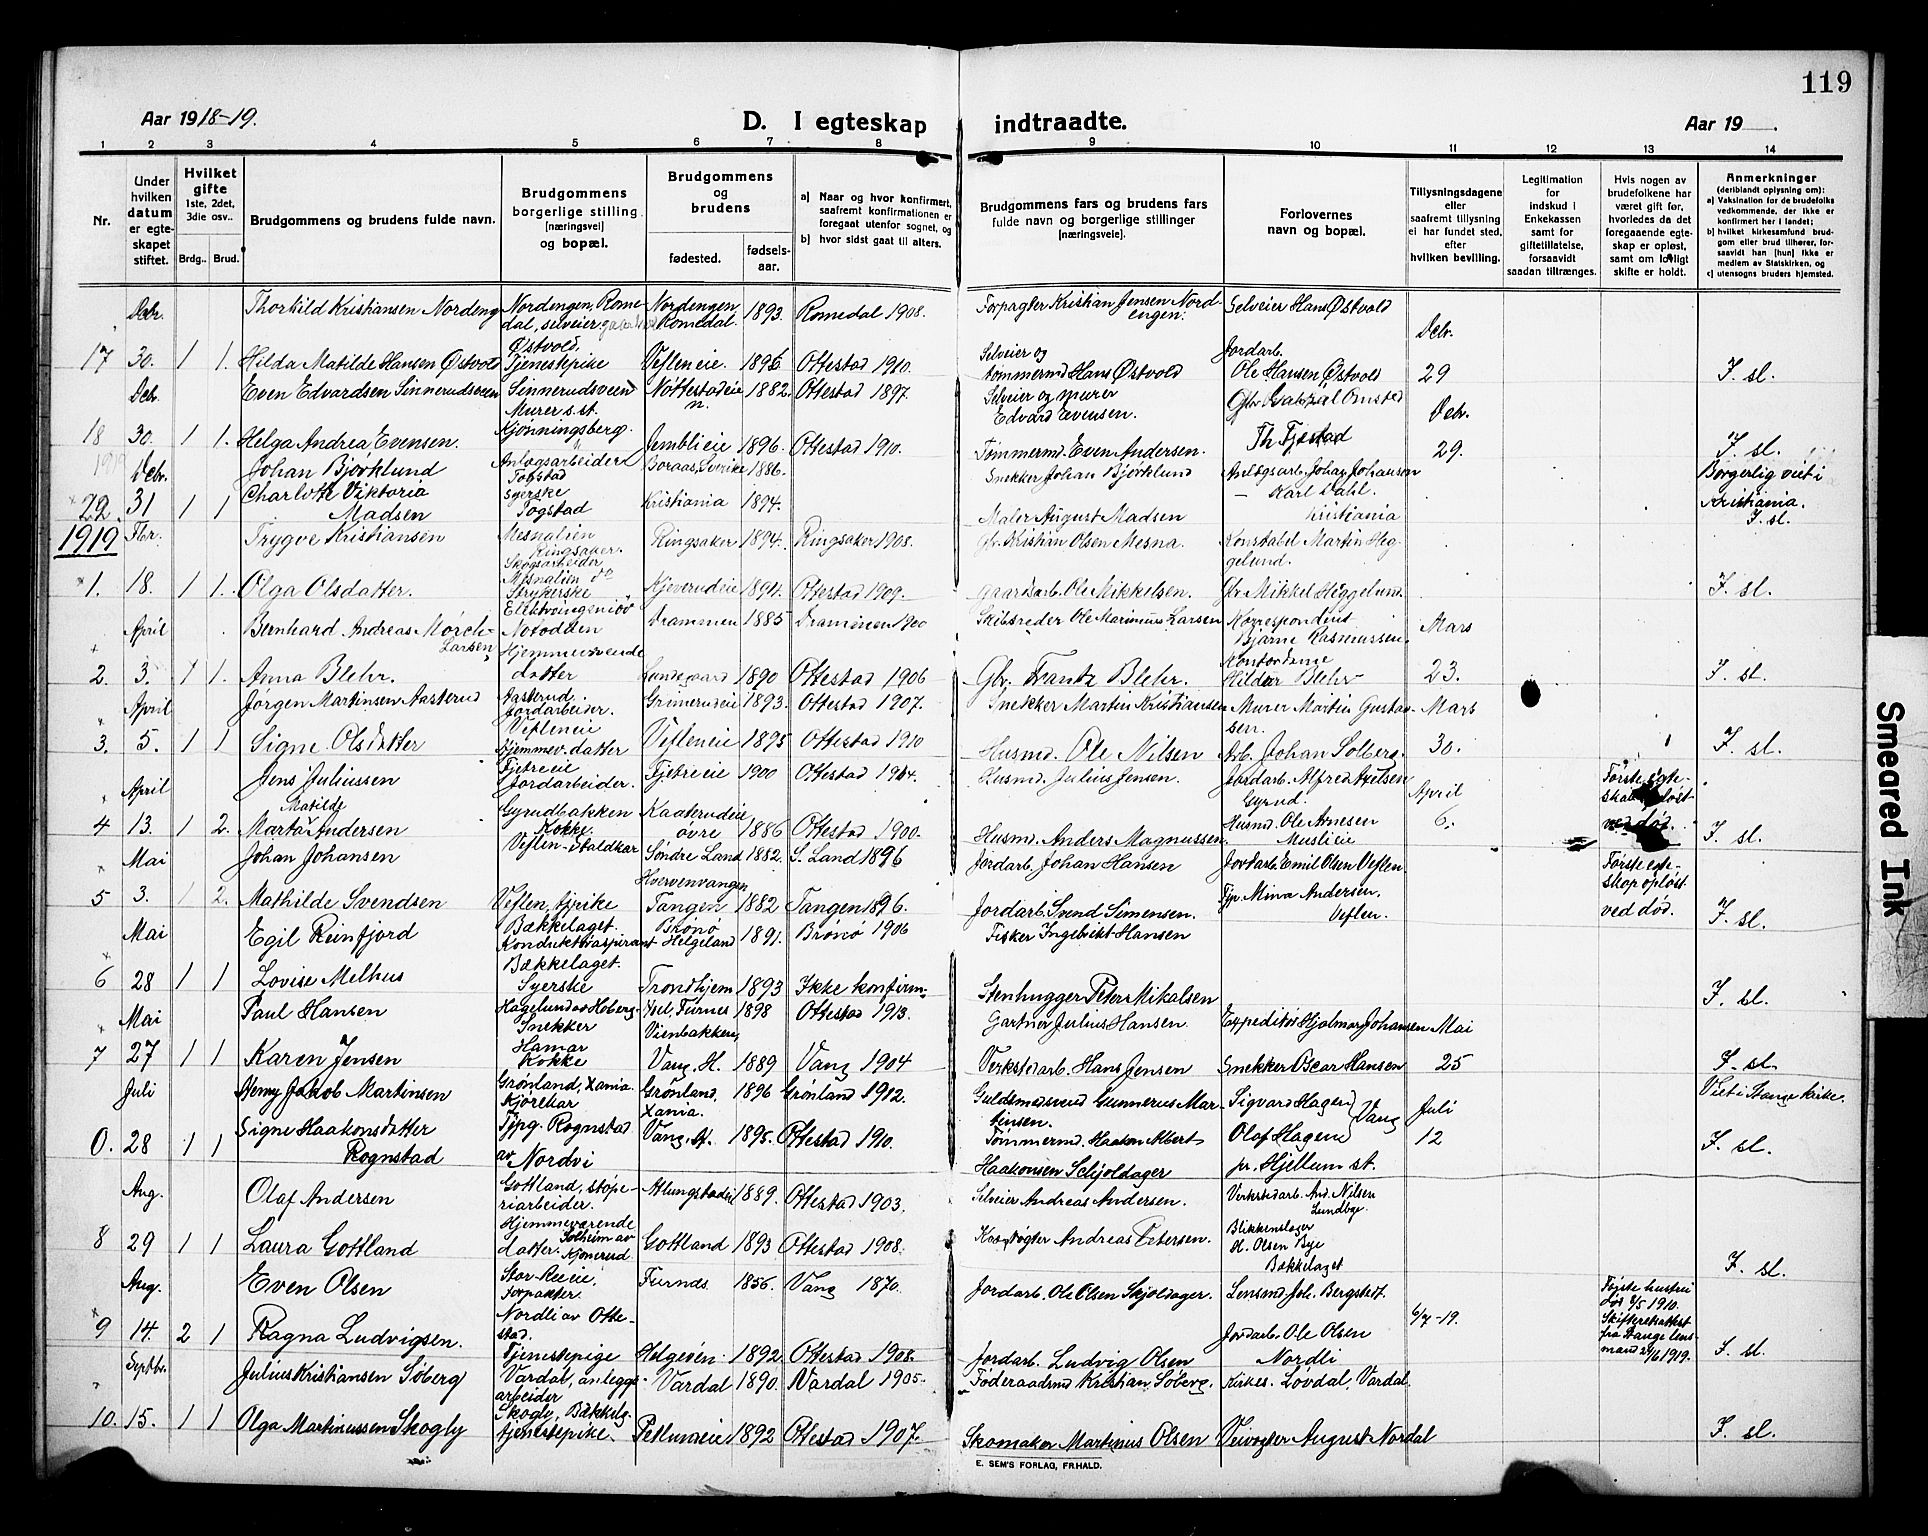 119
Aar 1918-19.
D. I egteskap indtraadte.
Aar 19 .
1 2 3 4 5 6 7 8 9 10 11 12 13 14
Nr.
Under hvilken datum er egteskapet stiftet.
Hvilket gifte 1ste, 2det, 3die osv..
Brdg..
Brud.
Brudgommens og brudens fulde navn.
Brudgommens borgerlige stilling [næringsvei] og bopæl.
Brudgommens og brudens
fødested.
fødselsaar.
a) Naar og hvor konfirmert, saafremt konfirmationen er foregaat utenfor sognet, og
b) hvor sidst gaat til alters.
Brudgommens fars og brudens fars fulde navn og borgerlige stillinger [næringsveie].
Forlovernes navn og bopæl.
Tillysningsdagene eller saafremt tillysning ei har fundet sted, efter hvilken bevilling.
Legitimation for indskud i Enkekassen samt for giftetillatelse, forsaavidt saadan tiltrænges.
Hvis nogen av brudefolkene har været gift før, hvorledes da det foregaaende egteskap er opløst, samt om lovlig skifte er holdt.
Anmerkninger (deriblandt oplysning om):
a) Vaksination for de brudefolks vedkommende, der ikke er konfirmert her i landet;
b) hvilket kirkesamfund brudgom eller brud tilhører, forsaavidt han [hun] ikke er medlem av Statskirken, og
c) utensogns bruders hjemsted.
Decbr. Thorvild Kristiansen Nordeng Nordengen, Romedal, selveier Nordengen Romedal. 1893. Romedal 1908. Forpagter Kristian Jensen Nordengen. Selveier Hans Østvold Decbr.
17 30. 1 1. Hilda Matilde Hansen Østvold Østvold. Tjenestepike Veflen eie. 1896 Ottestad 1910. Selveier og tømmermd Hans Østvold Jordarb. Ole Hansen Østvold 29 F. sl.
Decbr. Even Edvardsen Sinnerudsveen Sinnerudsveen Murer s. st. 1882. Ottestad 1897. Selveier og murer Edvard Evensen. Decbr.
18 30. 1 1. Helga Andrea Evensen. Kjønningsberg. Jemblieie 1896. Ottestad 1910. Tømmermd. Even Andersen. Th Fjæstad 29. F. sl.
Decbr. Johan Bjørklund Anlægsarbeider Togstad Boraas, Sverike 1886. Snekker Johan Bjørklund Anlægsarb. Johan Johanson Borgerlig viet i Kristiania.
22. 31 1 1 Charlotte Viktoria Madsen Syerske Togstad Kristiania 1894. Maler August Madsen — Karl Dahl. Kristiania F. sl.
1919 Fbr. Trygve Kristiansen Mesnalien Ringsaker. Skogsarbeider Ringsaker 1894. Ringsaker 1908. Gbr. Kristian Olsen Mesna. Konstabel Martin Heggelund.
1. 18. 1 1. Olga Olsdatter. Mesnalien do Strykerske Kjeverudeie 1894. Ottestad 1909. Gaardsarb. Ole Mikkelsen. Gbr. Mikkel Heggelund. F. sl.
April Bernhard Andreas Mørch-Larsen Elektroingeniør Notodden Drammen 1885 Drammen 1900 Skibsreder Ole Marinius Larsen Korrespondent Bjarne Rasmussen. Mars
2. 3. 1 1. Anna Blehr. Hjemmeværende datter Lundegaard 1890 Ottestad 1906 Gbr. Frantz Blehr. Kontordame Hildur Blehr 23. F. sl.
April Jørgen Martinsen Aasterud Aasterud. Jordarbeider. Grimerudeie 1893. Ottestad 1907. Snekker Martin Kristiansen Murer Martin Gustavsen. Mars
3. 5. 1 1 Signe Olsdatter Vefleneie Hjemmev. datter Vefleneie 1895 Ottestad 1910 Husmd. Ole Nilsen Arb. Johan Solberg. 30. F. sl.
April Jens Juliussen Fjetreeie Jordarbeider. Fjetreeie 1900 Ottestad 1914. Husmd. Julius Jensen. Jordarb. Alfred Axelsen Gyrud. April Første egteskap opløst ved død.
4 13. 1 2. Marta Matilde Andersen Gyrudbakken Kokke. Kaaterudeie øvre 1886 Ottestad 1900. Husmd. Anders Magnussen Husmd. Ole Arnesen Muslieie 6. F. sl.
Mai Johan Johansen Veflen-Staldkar Søndre Land 1882. S. Land 1896 Jordarb. Johan Hansen Jordarb. Emil Olsen Veflen Første egteskap opløst ved død.
5 3. 1 2. Mathilde Svendsen Veflen, tj.pike Hvervenvangen Tangen 1882 Tangen 1896. Jordarb. Svend Simensen. Tjp. Mina Andersen. Veflen. F. sl.
Mai Egil Reinfjord Bækkelaget. Konduktøraspirant Brønø Helgeland 1891. Brønø 1906 Fisker Ingebrikt Hansen
6 28 1 1 Lovise Melhus Bækkelaget. Syerske Trondhjem 1893 Ikke konfirm. Stenhugger Peter Mikalsen F. sl.
Mai Paul Hansen Snekker Furnes 1898 Ottestad 1913. Gartner Julius Hansen. Expeditør Hjalmar Johansen Mai
7 27 1 1 Karen Jensen Hamar Kokke Vienbakken, Vang, H. 1889 Vang 1904 Verkstedarb. Hans Jensen Snekker Oscar Hansen 25 F. sl.
Juli Jakob Martinsen Grønland, Xania. Kjørekar Grønland, Xania. 1896 Grønland 1912. Guldsmedsvend Gunnerus Martinsen. Sigvard Hagen Vang Juli Viet i Stange kirke.
0. 28 1 1 Signe Haakonsdatter Rognstad Tjpg. Rognstad av Nordvi Vang, H. 1895. Ottestad 1910. Tømmermd. Haakon Albert Haakonsen Schjoldager Olaf Hagen pr. Hjellum st. 12 F. sl.
Aug. Olaf Andersen Gottland, støperiarbeider. Atlungstadeie 1889. Ottestad 1903. Selveier Andreas Andersen. Verkstedarb. And. Nilsen Lundbye.
8 29 1 1 Laura Gottland Hjemmeværende datter. Solheim av Kjonerud Gottland 1893 Ottestad 1908. Andreas Petersen. Blikkenslager H. Olsen Bye Bækkelaget F. sl.
Aug. Even Olsen Stor-Reeie. Forpakter. Furnes 1856. Vang 1870. Jordarb. Ole Olsen Skjoldager. Lensmd Joh. Bergstedt. 6/7-19. Første hustru død 1910. Skifteretattest fra Stange lensmand 1919.
9 14. 2 1 Ragna Ludvigsen. Nordli av Ottestad. Tjenestepige Helgeøen 1892. Ottestad 1908. Jordarb. Ludvig Olsen Jordarb. Ole Olsen Nordli F. sl.
Septbr. Julius Kristiansen Søberg Vardal, anlegsarbeider Vardal 1890. Vardal 1905. Føderaadsmd Kristian Søberg. Kirkes. Løvdal, Vardal.
10. 15. 1 1 Olga Martinussen Skogly Skogly, Bækkelg. tjenestepike. 1892 Ottestad 1907. Skomaker Martinus Olsen Veivogter August Nordal F. sl.
E. SEM'S FORLAG, FRHALD.
Smeared Ink